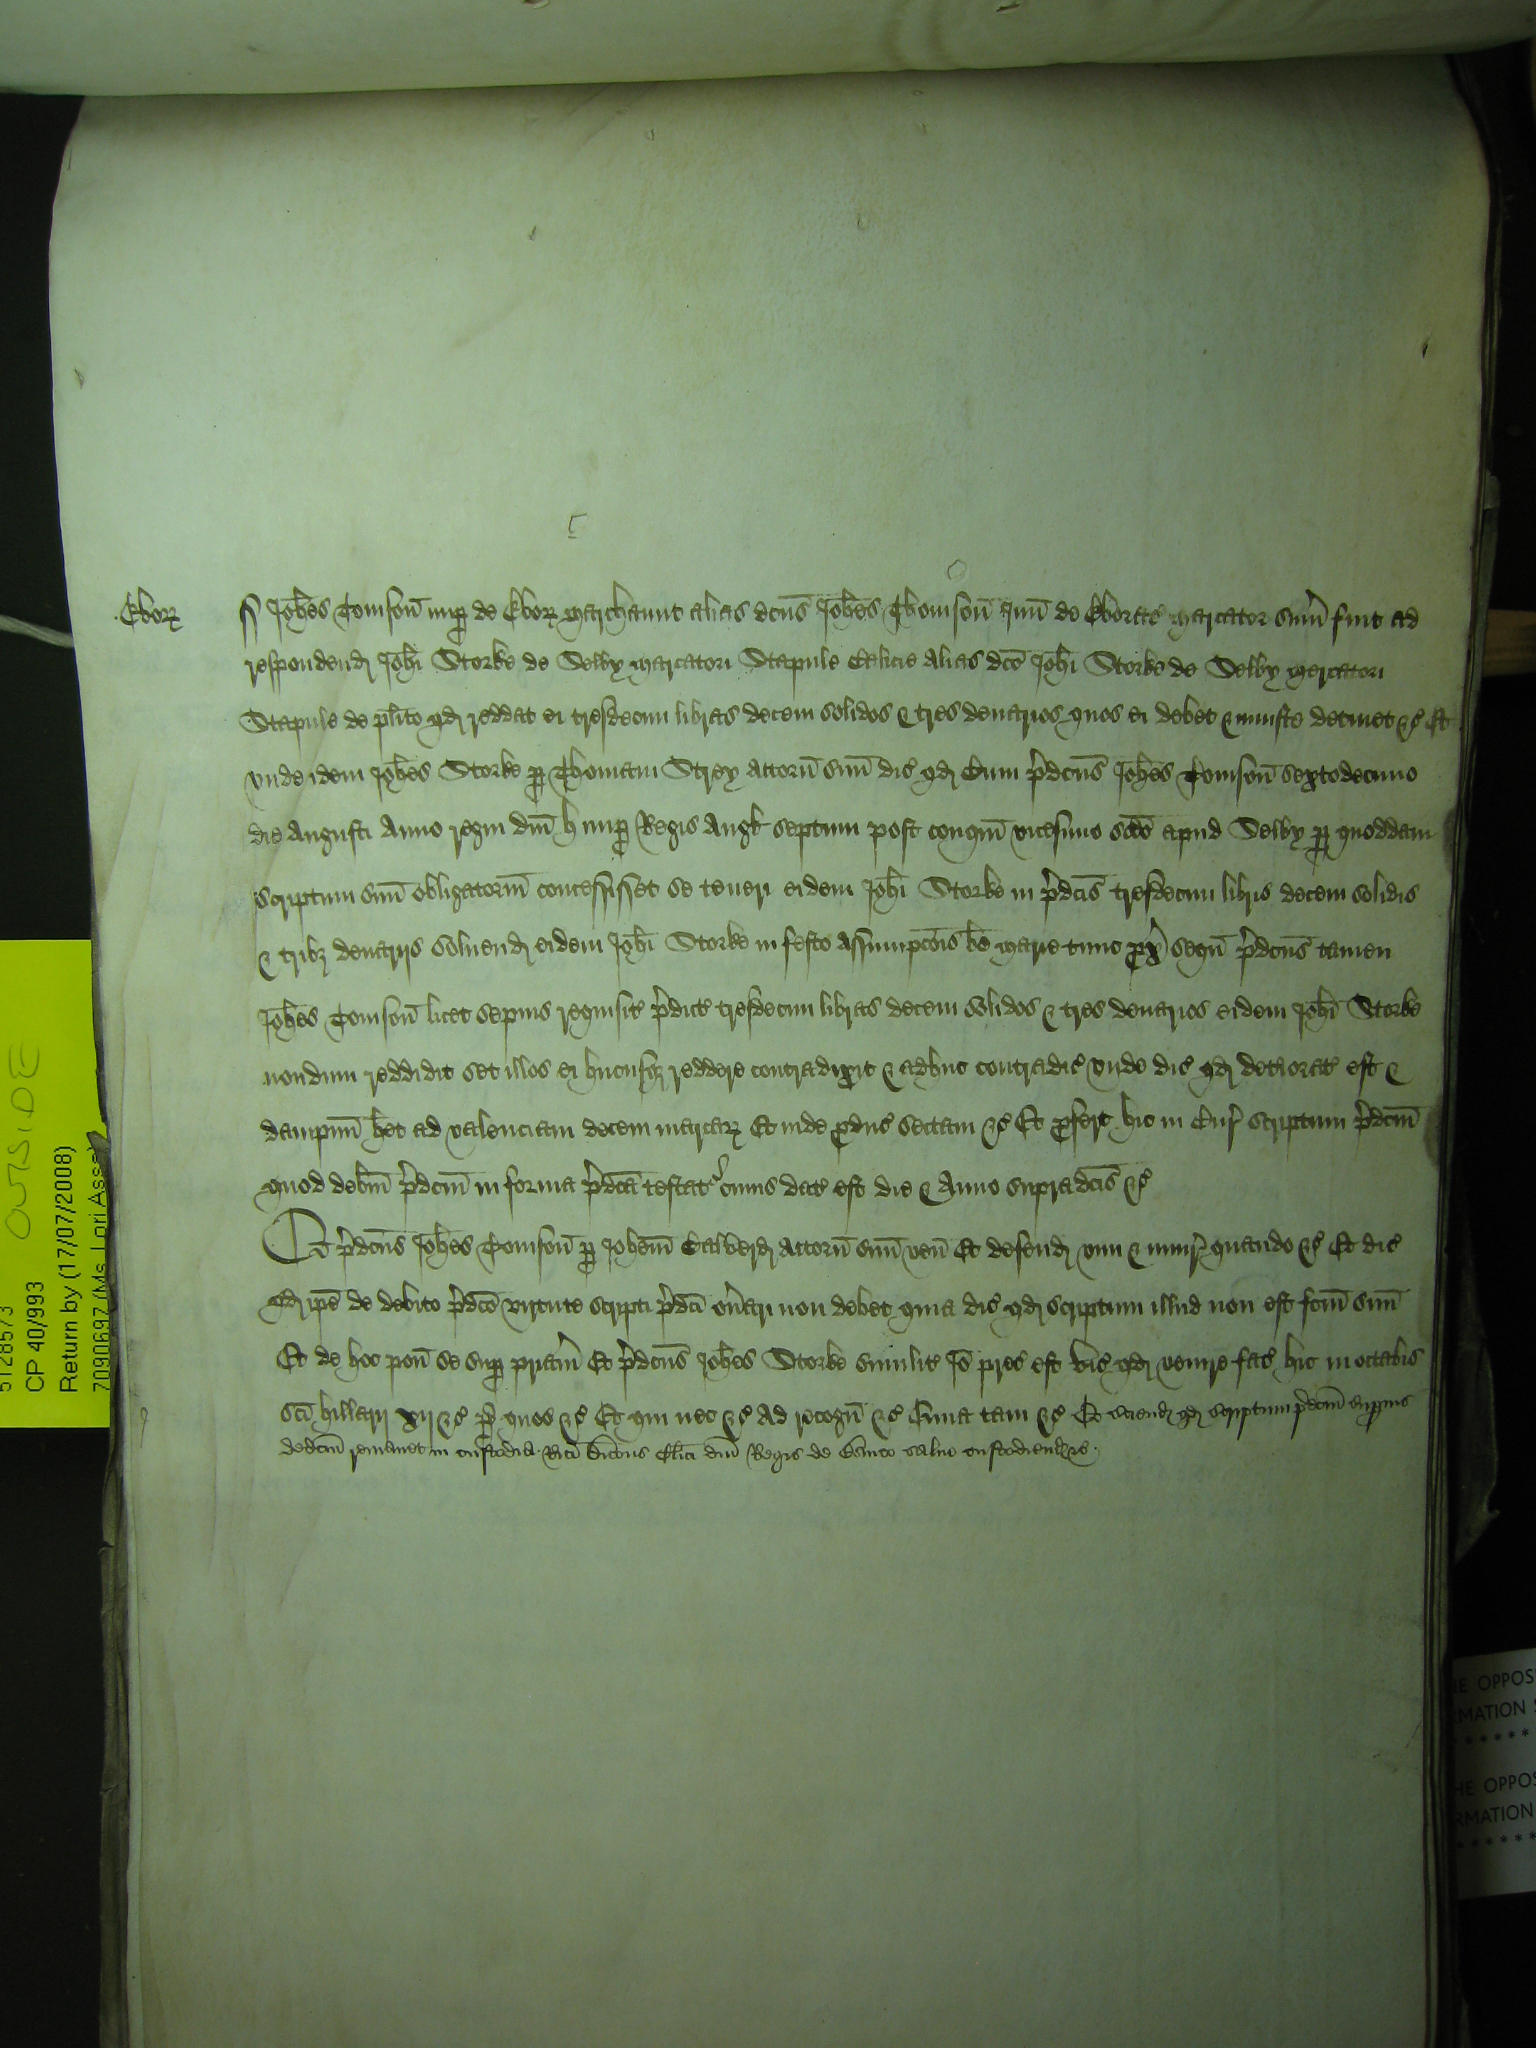 Eborz
ss Johes Tomson nup de Eborz Marchaunt alias dcus Johes Thomson Jun de Eborac mercator sum fuit ad
respondend Johi Storke de Selby mercatori Stapule Calicie alias dco Johi Storke de Selby mercatori
Stapule de plito qd reddat ei tresdecim libras decem solidos & tres denarios quos ei debet & iniuste detinet &c Et
vnde idem Johes Storke p Thomam Strey attorn suu dic qd Cum pdcus Johes Tomson sextodecimo
die Augusti Anno regni dni H nup Regis Angl septimi post conqm vicesimo scdo apud Selby p quoddam
scriptum suu obligatoriu concessisset se teneri eidem Johi Storke in pdcis tresdecim libris decem solidis
& tribz denarijs soluend eidem Johi Storke in festo Assumpcois be Marie tunc px sequ pdcus tamen
Johes Tomson licet sepius requisit pdict tresdecim libras decem solidos & tres denarios eidem Johi Storke
nondum reddidit set illos ei hucusqz reddere contradixit & adhuc contradic vnde dic qd deteriorat est &
dampnu het ad valenciam decem marcarz Et inde pduc sectam &c Et profert hic in Cur scriptum pdcm
quod debm pdcm in forma pdca testat cuius dat est die & Anno supradcis &c
Et pdcus Johes Tomson p Johem Calverd attorn suu ven Et defend vim & iniur quando &c Et dic
qd ipe de debito pdco virtute scripti pdci on'ari non debet quia dic qd scriptum illud non est fcm suu
Et de hoc pon se sup priam Et pdcus Johes Storke similit Io prec est vic qd venire fac hic in octabis
sci Hillarij xij &c p quos &c Et qui nec &c ad recogn &c Quia tam &c Et sciend qd scriptum pdcm supius
dedcm remanet in custodia Rici Decons Clici dni Regis de Banco saluo custodiend &c
OUTSIDE
5128573
CP 40/993
Return by (17/07/2008)
7090697 (Ms. Lori
HE OPPOS
RMATION
******
HE OPPOS
RMATION
******